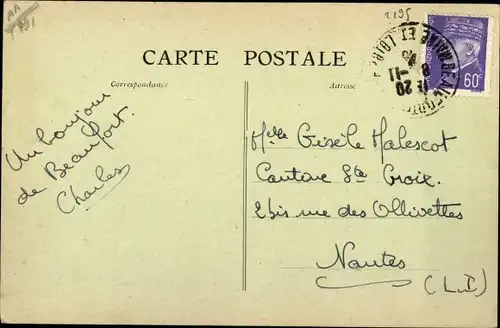 2195
CARTE POSTALE
Correspondance
Adresse
60c
MAINE ET LOIRE
11 20
8 -11
Un bonjour
de Beaufort.
Charles
Melle Gisèle Malescot
Cantine Ste Croix.
2 bis rue des Ollivettes
Nantes
(L.I)